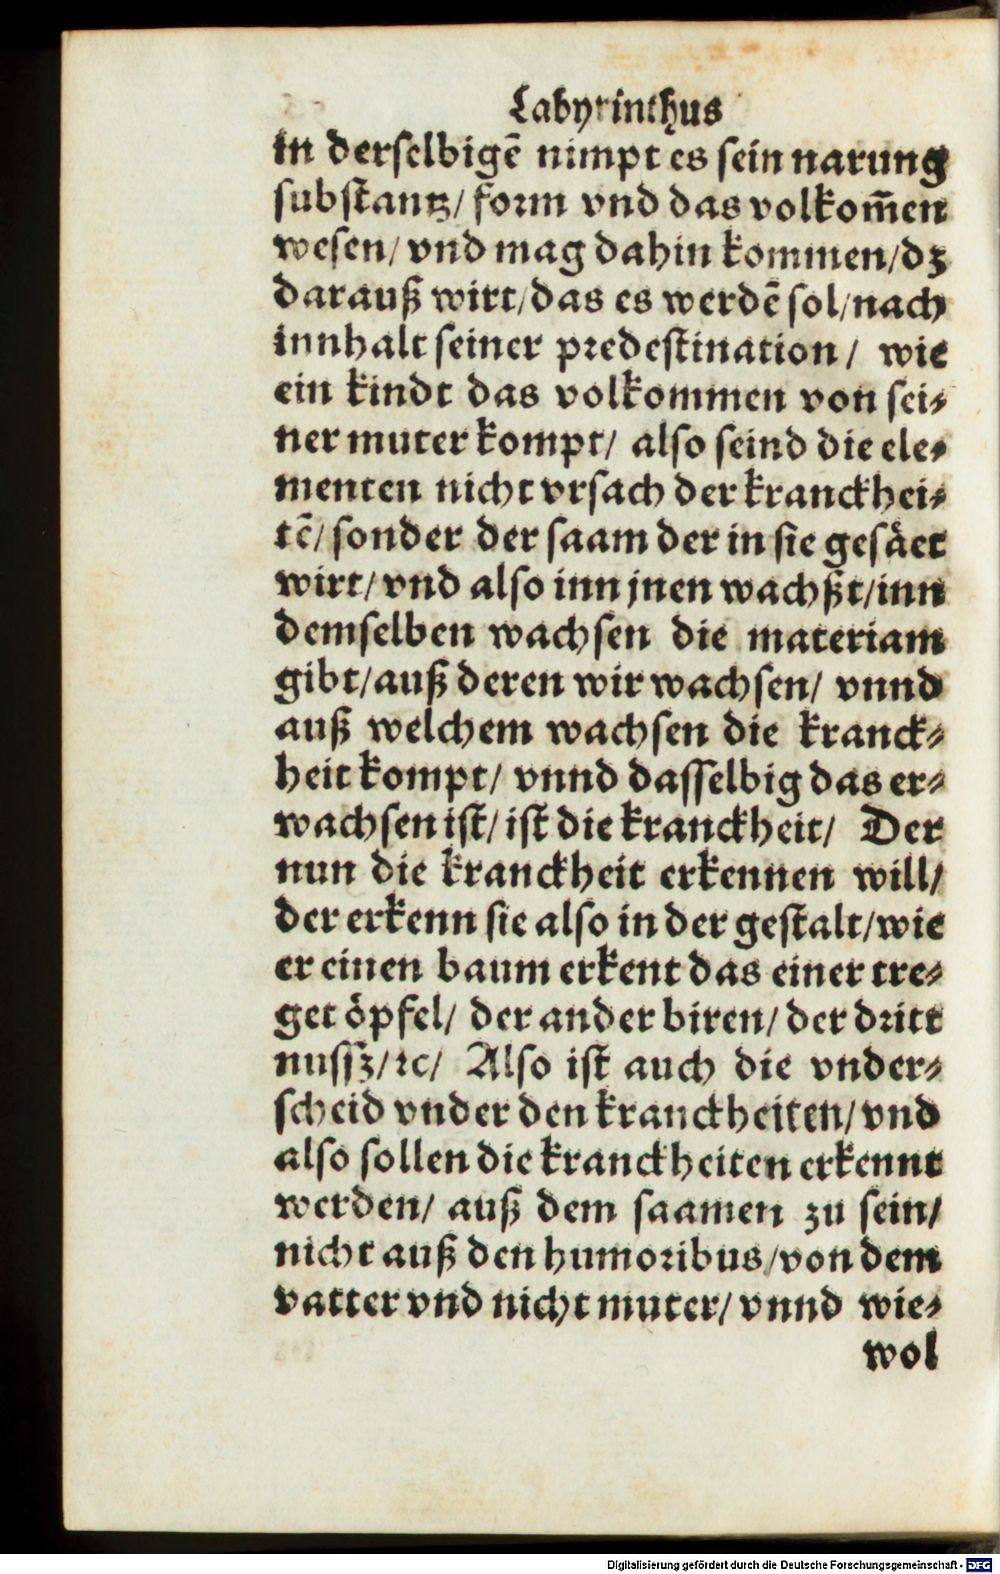 Labyrinthus
in derselbigē nimpt es sein narung
substantz/ form vnd das volkom̄en
wesen/ vnd mag dahin kommen/dz
darauß wirt/das es werdē sol/nach
innhalt seiner predestination/ wie
ein kindt das volkommen von sei⸗
ner muter kompt/ also seind die ele⸗
menten nicht vrsach der kranckhei⸗
tē/ sonder der saam der in sie gesäet
wirt/ vnd also inn jnen wachßt/inn
demselben wachsen die materiam
gibt/auß deren wir wachsen/ vnnd
auß welchem wachsen die kranck⸗
heit kompt/ vnnd dasselbig das er⸗
wachsen ist/ ist die kranckheit/ Der
nun die kranckheit erkennen will/
der erkenn sie also in der gestalt/wie
er einen baum erkent das einer tre⸗
get öpfel/ der ander biren/ der dritt
nussz/ꝛc/ Also ist auch die vnder⸗
scheid vnder den kranckheiten/ vnd
also sollen die kranckheiten erkennt
werden/ auß dem saamen zu sein/
nicht auß den humoribus/von dem
vatter vnd nicht muter/ vnnd wie⸗
wol
Digitalisierung gefördert durch die Deutsche Forschungsgemeinschaft - DFG